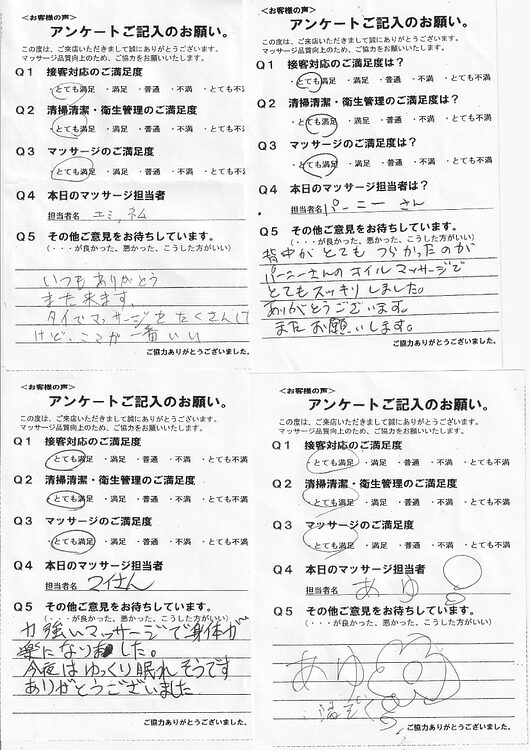 <お客様の声>
アンケートご記入のお願い。
この度は、ご来店いただきまして誠にありがとうございます。
マッサージ品質向上のため、ご協力をお願いいたします。
Q1 接客対応のご満足度
・とても満足 ・満足 ・普通 ・不満 ・とても不満
Q2 清掃清潔・衛生管理のご満足度
・とても満足 ・満足 ・普通 ・不満 ・とても不満
Q3 マッサージのご満足度
・とても満足 ・満足 ・普通 ・不満 ・とても不満
Q4 本日のマッサージ担当者
担当者名 エミ,ネム
Q5 その他ご意見をお待ちしています。
(・・・が良かった、悪かった、こうした方がいい)
いつもありがとう
また来ます。
タイでマッサージをたくさんして
けど、ここが一番いい
ご協力ありがとうございました。
<お客様の声>
アンケートご記入のお願い。
この度は、ご来店いただきまして誠にありがとうございます。
マッサージ品質向上のため、ご協力をお願いいたします。
Q1 接客対応のご満足度は?
・とても満足 ・満足 ・普通 ・不満 ・とても不満
Q2 清掃清潔・衛生管理のご満足度は?
・とても満足 ・満足 ・普通 ・不満 ・とても不満
Q3 マッサージのご満足度は?
・とても満足 ・満足 ・普通 ・不満 ・とても不満
Q4 本日のマッサージ担当者は?
担当者名 パーニーさん
Q5 その他ご意見をお待ちしています。
(・・・が良かった、悪かった、こうした方がいい)
背中がとても つらかったのが
パーニーさんのオイルマッサージで
とてもスッキリしました。
ありがとうございます。
またお願いします。
ご協力ありがとうございました。
<お客様の声>
アンケートご記入のお願い。
この度は、ご来店いただきまして誠にありがとうございます。
マッサージ品質向上のため、ご協力をお願いいたします。
Q1 接客対応のご満足度
・とても満足 ・満足 ・普通 ・不満 ・とても不満
Q2 清掃清潔・衛生管理のご満足度
・とても満足 ・満足 ・普通 ・不満 ・とても不満
Q3 マッサージのご満足度
・とても満足 ・満足 ・普通 ・不満 ・とても不満
Q4 本日のマッサージ担当者
担当者名 マイさん
Q5 その他ご意見をお待ちしています。
(・・・が良かった、悪かった、こうした方がいい)
力強いマッサージで身体が
楽になりました。
今夜はゆっくり眠れそうです
ありがとうございました
ご協力ありがとうございました。
<お客様の声>
アンケートご記入のお願い。
この度は、ご来店いただきまして誠にありがとうございます。
マッサージ品質向上のため、ご協力をお願いいたします。
Q1 接客対応のご満足度
・とても満足 ・満足 ・普通 ・不満 ・とても不満
Q2 清掃清潔・衛生管理のご満足度
・とても満足 ・満足 ・普通 ・不満 ・とても不満
Q3 マッサージのご満足度
・とても満足 ・満足 ・普通 ・不満 ・とても不満
Q4 本日のマッサージ担当者
担当者名 あゆ
Q5 その他ご意見をお待ちしています。
(・・・が良かった、悪かった、こうした方がいい)
あゆ
ご協力ありがとうございました。